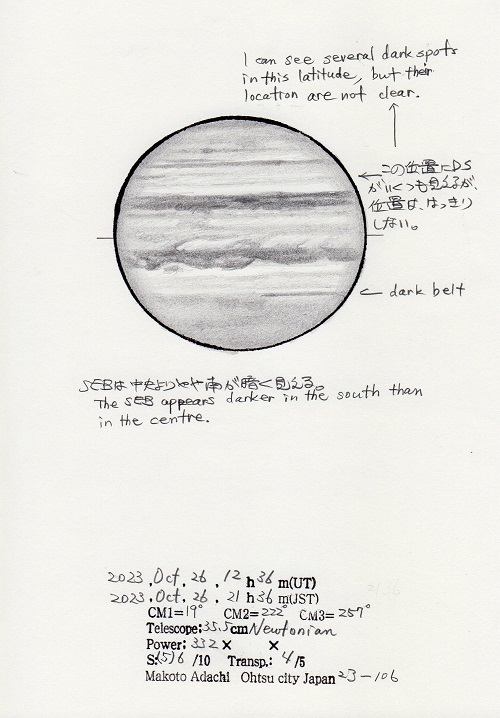 I can see several dark spots
in this latitude, but their
location are not clear.
この位置にDS
がいくつも見えるが、
位置は、はっきり
しない。
dark belt
SEBは中央よりやや南が暗く見える。
The SEB appears darker in the south than
in the centre.
2023.Oct.26.12h36m(UT)
2023.Oct.26.21h36m(JST)
CM1=19° CM2=222° CM3=257°
Telescope:35.5cm Newtonian
Power:332× ×
S:(5)6/10 Transp.:4/5
Makoto Adachi Ohtsu city Japan 23-106